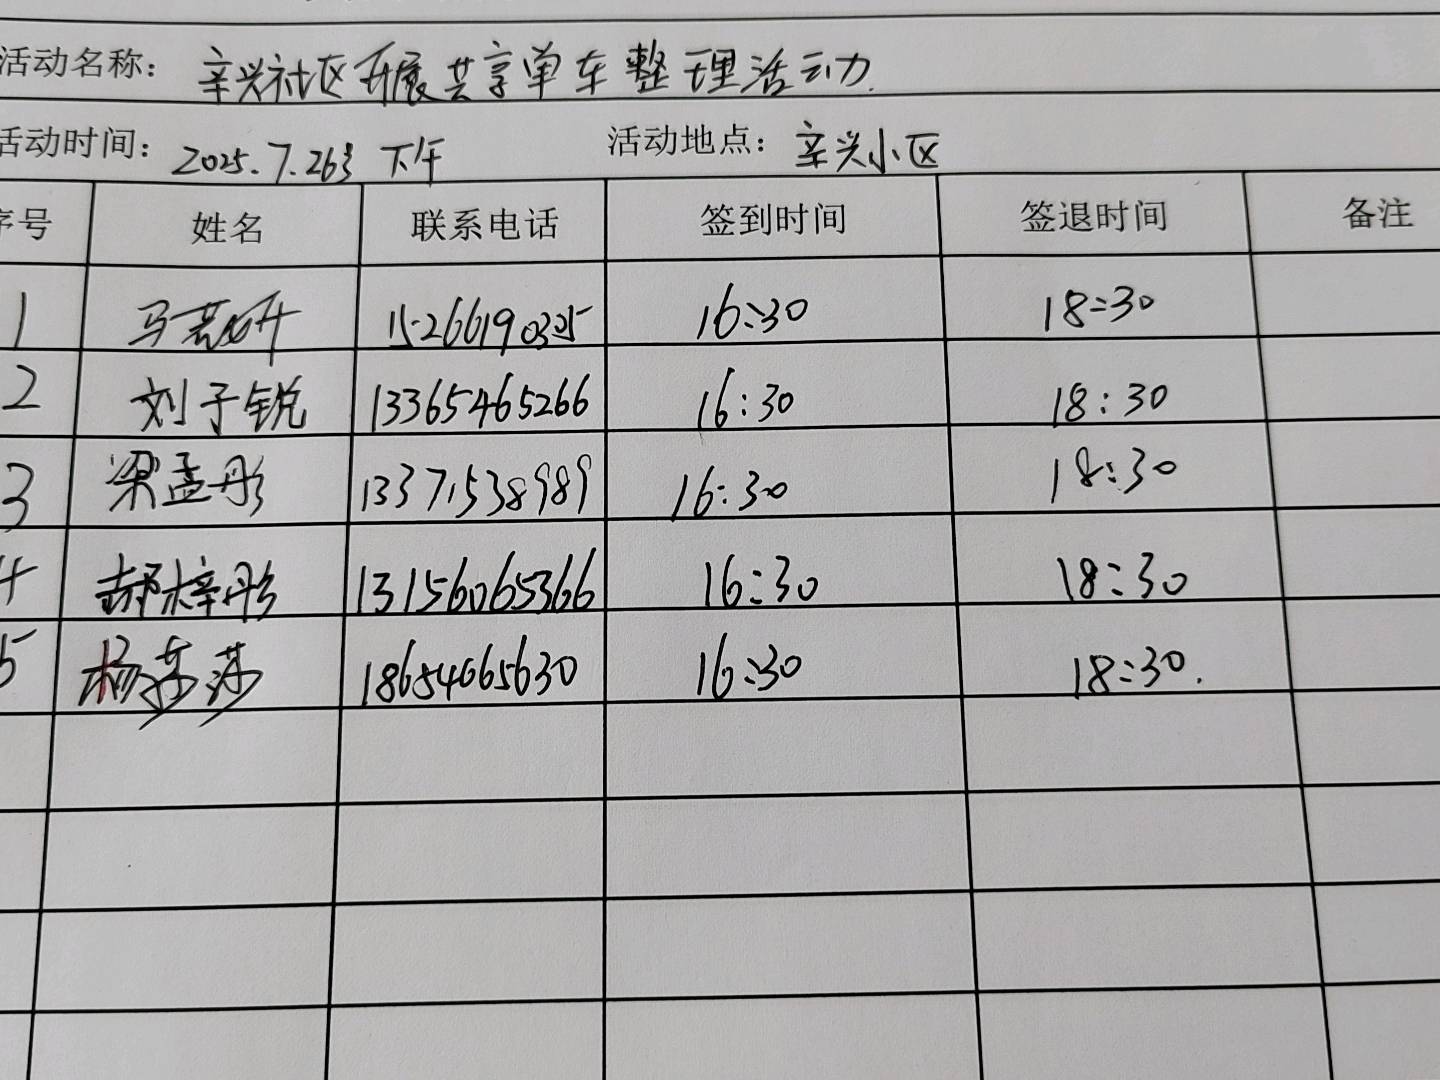 活动名称：辛兴社区开展共享单车整理活动.
活动时间：2025.7.26号 下午 活动地点：辛兴小区
序号 姓名 联系电话 签到时间 签退时间 备注
1 马若妍 15266190325 16:30 18:30
2 刘子锐 13365465266 16:30 18:30
3 梁孟彤 13371538989 16:30 18:30
4 郝梓彤 13156065366 16:30 18:30
5 杨莎莎 18654665630 16:30 18:30.